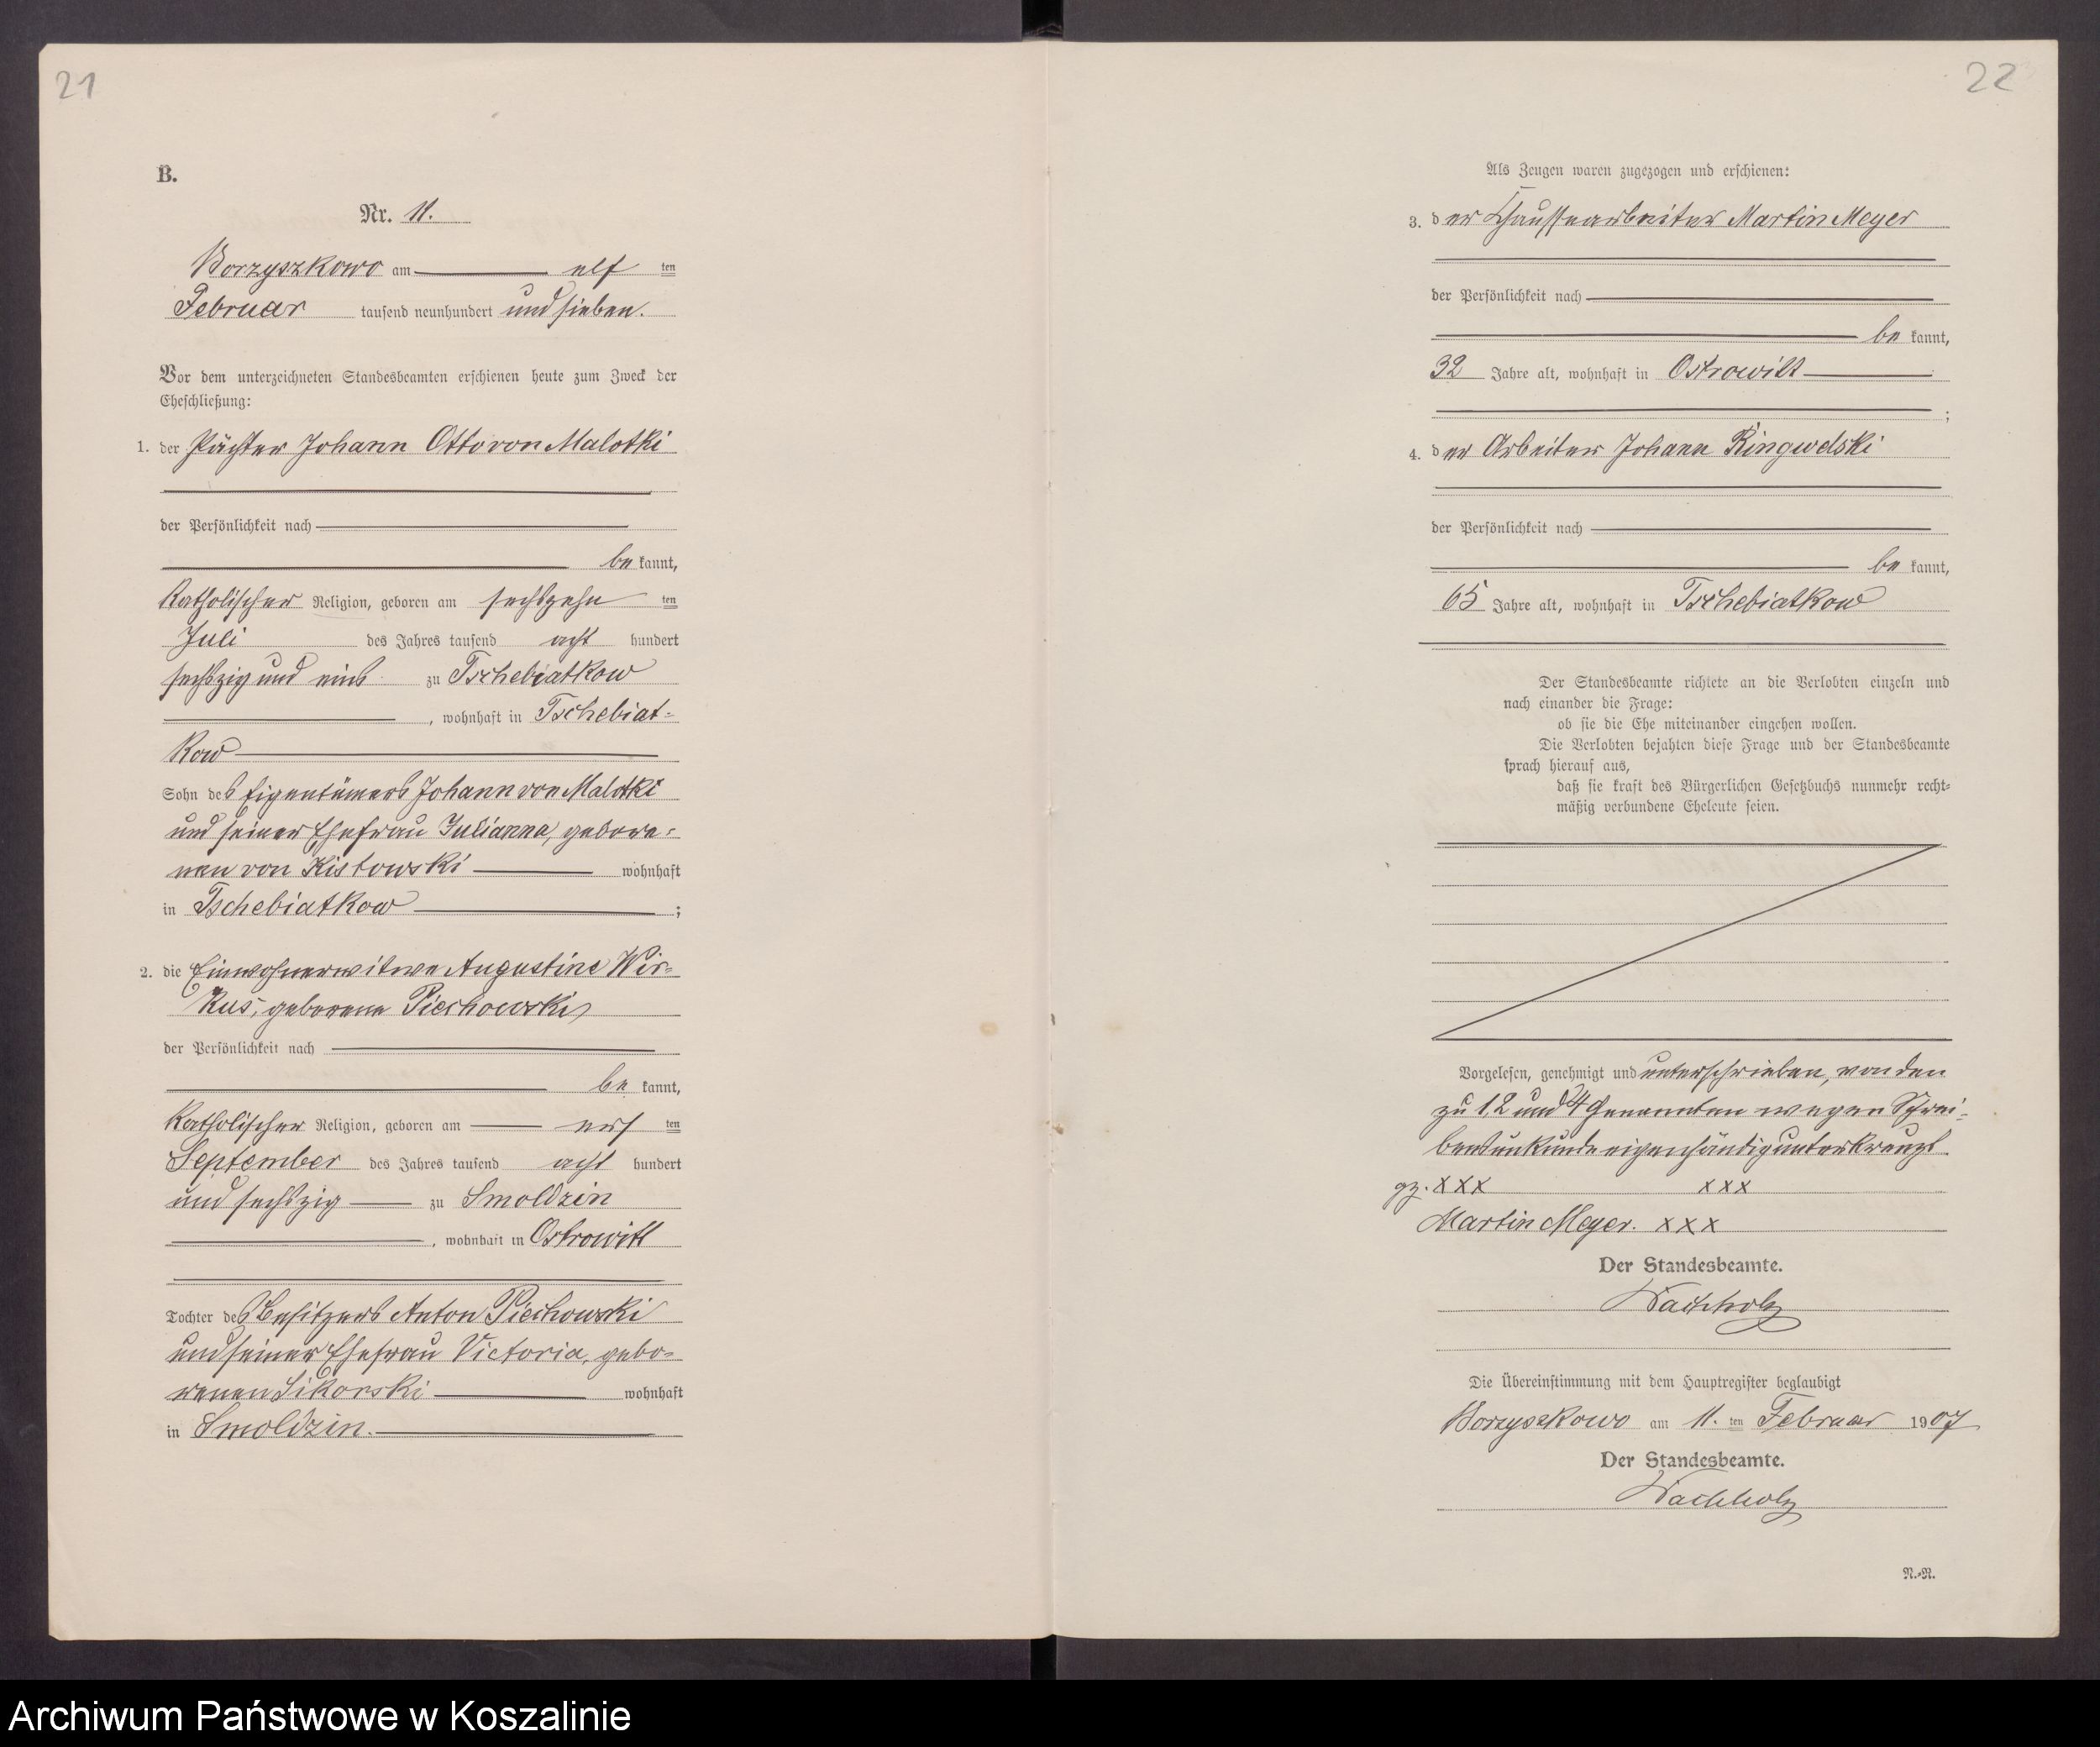 21
B.
Nr. 11.
Borzyszkowo am elf ten
Februar tausend neunhundert und sieben.
Vor dem unterzeichneten Standesbeamten erschienen heute zum Zweck der
Eheschließung:
1. der Pächter Johann Otto von Malotki
der Persönlichkeit nach
be kannt,
katholischer Religion, geboren am sechszehn ten
Juli des Jahres tausend acht hundert
sechszig und eins zu Tschebiatkow
, wohnhaft in Tschebiat=
kow
Sohn des Eigentümers Johann von Malotki
und seiner Ehefrau Julianna, gebore=
nen von Kistowski wohnhaft
in Tschebiatkow ;
2. die Einwohnerwitwe Augustine Wir=
kus, geborene Piechowski
der Persönlichkeit nach
be kannt,
katholischer Religion, geboren am ers ten
September des Jahres tausend acht hundert
und sechszig zu Smoldzin
, wohnhaft in Ostrowitt
Tochter des Besitzers Anton Piechowski
und seiner Ehefrau Victoria, gebo=
renen Sikorski wohnhaft
in Smoldzin.
22
Als Zeugen waren zugezogen und erschienen:
3. der Chausseearbeiter Martin Meyer
der Persönlichkeit nach
be kannt,
32 Jahre alt, wohnhaft in Ostrowitt
;
4. der Arbeiter Johann Ringwelski
der Persönlichkeit nach
be kannt,
65 Jahre alt, wohnhaft in Tschebiatkow
Der Standesbeamte richtete an die Verlobten einzeln und
nach einander die Frage:
ob sie die Ehe miteinander eingehen wollen.
Die Verlobten bejahten diese Frage und der Standesbeamte
sprach hierauf aus,
daß sie kraft des Bürgerlichen Gesetzbuchs nunmehr recht=
mäßig verbundene Eheleute seien.
Vorgelesen, genehmigt und unterschrieben, von den
zu 1, 2 und 4 Genannten wegen Schrei=
bensunkunde eigenhändig unterkreuzt.
gz. xxx xxx
Martin Meyer. xxx
Der Standesbeamte.
Wachholz
Die Übereinstimmung mit dem Hauptregister beglaubigt
Borzyszkowo am 11. ten Februar 1907
Der Standesbeamte.
Wachholz
N.=R.
Archiwum Państwowe w Koszalinie